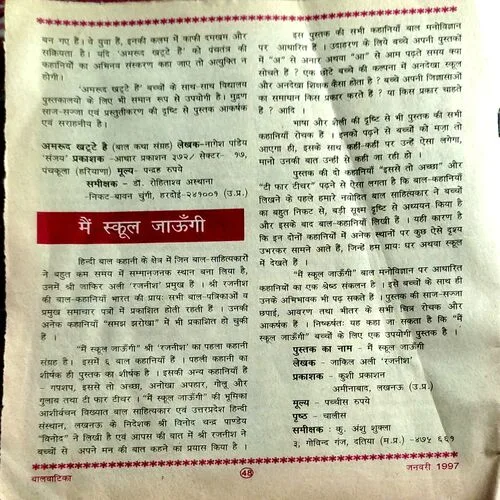 बन गए हैं। वे युवा हैं, इनकी कलम में काफी दमखम और
सक्रियता है। यदि 'अमरूद खट्टे हैं' को पंचतंत्र की
कहानियों का अभिनव संस्करण कहा जाए तो अत्युक्ति न
होगी।
'अमरूद खट्टे हैं' बच्चों के साथ-साथ विद्यालय
पुस्तकालयों के लिए भी समान रूप से उपयोगी है। मुद्रण
साज-सज्जा एवं प्रस्तुतीकरण की दृष्टि से पुस्तक आकर्षक
एवं सराहनीय है।
अमरूद खट्टे है (बाल कथा संग्रह) लेखक-नागेश पांडेय
'संजय' प्रकाशक - आधार प्रकाशन ३७२/ सेक्टर- १७,
पंचकूला (हरियाणा) मूल्य- पन्द्रह रुपये
समीक्षक - डॉ. रोहिताश्व अस्थाना
-निकट-बावन चुंगी, हरदोई-२४१००१ (उ.प्र.)
मैं स्कूल जाऊँगी
हिन्दी बाल कहानी के क्षेत्र में जिन बाल-साहित्यकारों
ने बहुत कम समय में सम्मानजनक स्थान बना लिया है,
उनमें श्री जाकिर अली 'रजनीश' प्रमुख हैं। श्री रजनीश
की बाल-कहानियाँ भारत की प्रायः सभी बाल-पत्रिकाओं व
प्रमुख समाचार पत्रों में प्रकाशित होती रहती हैं। उनकी
अनेक कहानियाँ "समझ झरोखा" में भी प्रकाशित हो चुकी
हैं।
"मैं स्कूल जाऊँगी" श्री 'रजनीश' का पहला कहानी
संग्रह है। इसमें ६ बाल कहानियाँ हैं। पहली कहानी का
शीर्षक ही पुस्तक का शीर्षक है। इसकी अन्य कहानियाँ हैं
- गपशप, इससे तो अच्छा, अनोखा अपहार, गोलू और
गुलाब तथा टी फार टीचर। "मैं स्कूल जाऊँगी" की भूमिका
आशीर्वचन विख्यात बाल साहित्यकार एवं उत्तरप्रदेश हिन्दी
संस्थान, लखनऊ के निदेशक श्री विनोद चन्द्र पाण्डेय
"विनोद" ने लिखी है एवं आपस की बात में श्री रजनीश ने
बच्चों से अपने मन की बात कहने का प्रयास किया है।
इस पुस्तक की सभी कहानियाँ बाल मनोविज्ञान
पर आधारित हैं। उदाहरण के लिये बच्चे अपनी पुस्तकों
में "अ" से अनार अथवा "आ" से आम पढ़ते समय क्या
सोचते हैं? एक छोटे बच्चे की कल्पना में अनदेखा स्कूल
और अनदेखा शिक्षक कैसा होता है? बच्चे अपनी जिज्ञासाओं
का समाधान किस प्रकार करते हैं? या किस प्रकार चाहते
हैं? आदि।
भाषा और शैली की दृष्टि से भी पुस्तक की सभी
कहानियाँ रोचक हैं। इनको पढ़ने से बच्चों को मजा तो
आएगा ही, इसके साथ कहीं-कहीं पर उन्हें ऐसा लगेगा,
मानो उनकी बात उन्हीं से कही जा रही हो।
पुस्तक की दो कहानियाँ "इससे तो अच्छा" और
"टी फार टीचर" पढ़ने से ऐसा लगता है कि बाल-कहानियाँ
लिखने के पहले हमारे नवोदित बाल साहित्यकार ने बच्चों
का बहुत निकट से, बड़ी सूक्ष्म दृष्टि से अध्ययन किया है
और इसके बाद बाल-कहानियाँ लिखी हैं। यही कारण है
कि इन दोनों कहानियों में अनेक स्थानों पर कुछ ऐसे दृश्य
उभरकर सामने आते हैं, जिन्हें हम प्रायः घर अथवा स्कूल
में देखते हैं।
"मैं स्कूल जाऊँगी" बाल मनोविज्ञान पर आधारित
कहानियों का एक श्रेष्ठ संकलन है। इसे बच्चों के साथ ही
उनके अभिभावक भी पढ़ सकते हैं। पुस्तक की साज-सज्जा
छपाई, आवरण तथा भीतर के सभी चित्र रोचक और
आकर्षक हैं। निष्कर्षतः यह कहा जा सकता है कि "मैं
स्कूल जाऊँगी" बच्चों के लिए एक उपयोगी पुस्तक है।
पुस्तक का नाम - मैं स्कूल जाऊँगी
लेखक - जाकिल अली 'रजनीश'
प्रकाशक - कुशी प्रकाशन
अमीनाबाद, लखनऊ (उ.प्र.)
मूल्य - पच्चीस रुपये
पृष्ठ - चालीस
समीक्षक : कु. अंशु शुक्ला
३, गोविन्द गंज, दतिया (म.प्र.) -४७५ ६६१
बालवाटिका
48
जनवरी 1997